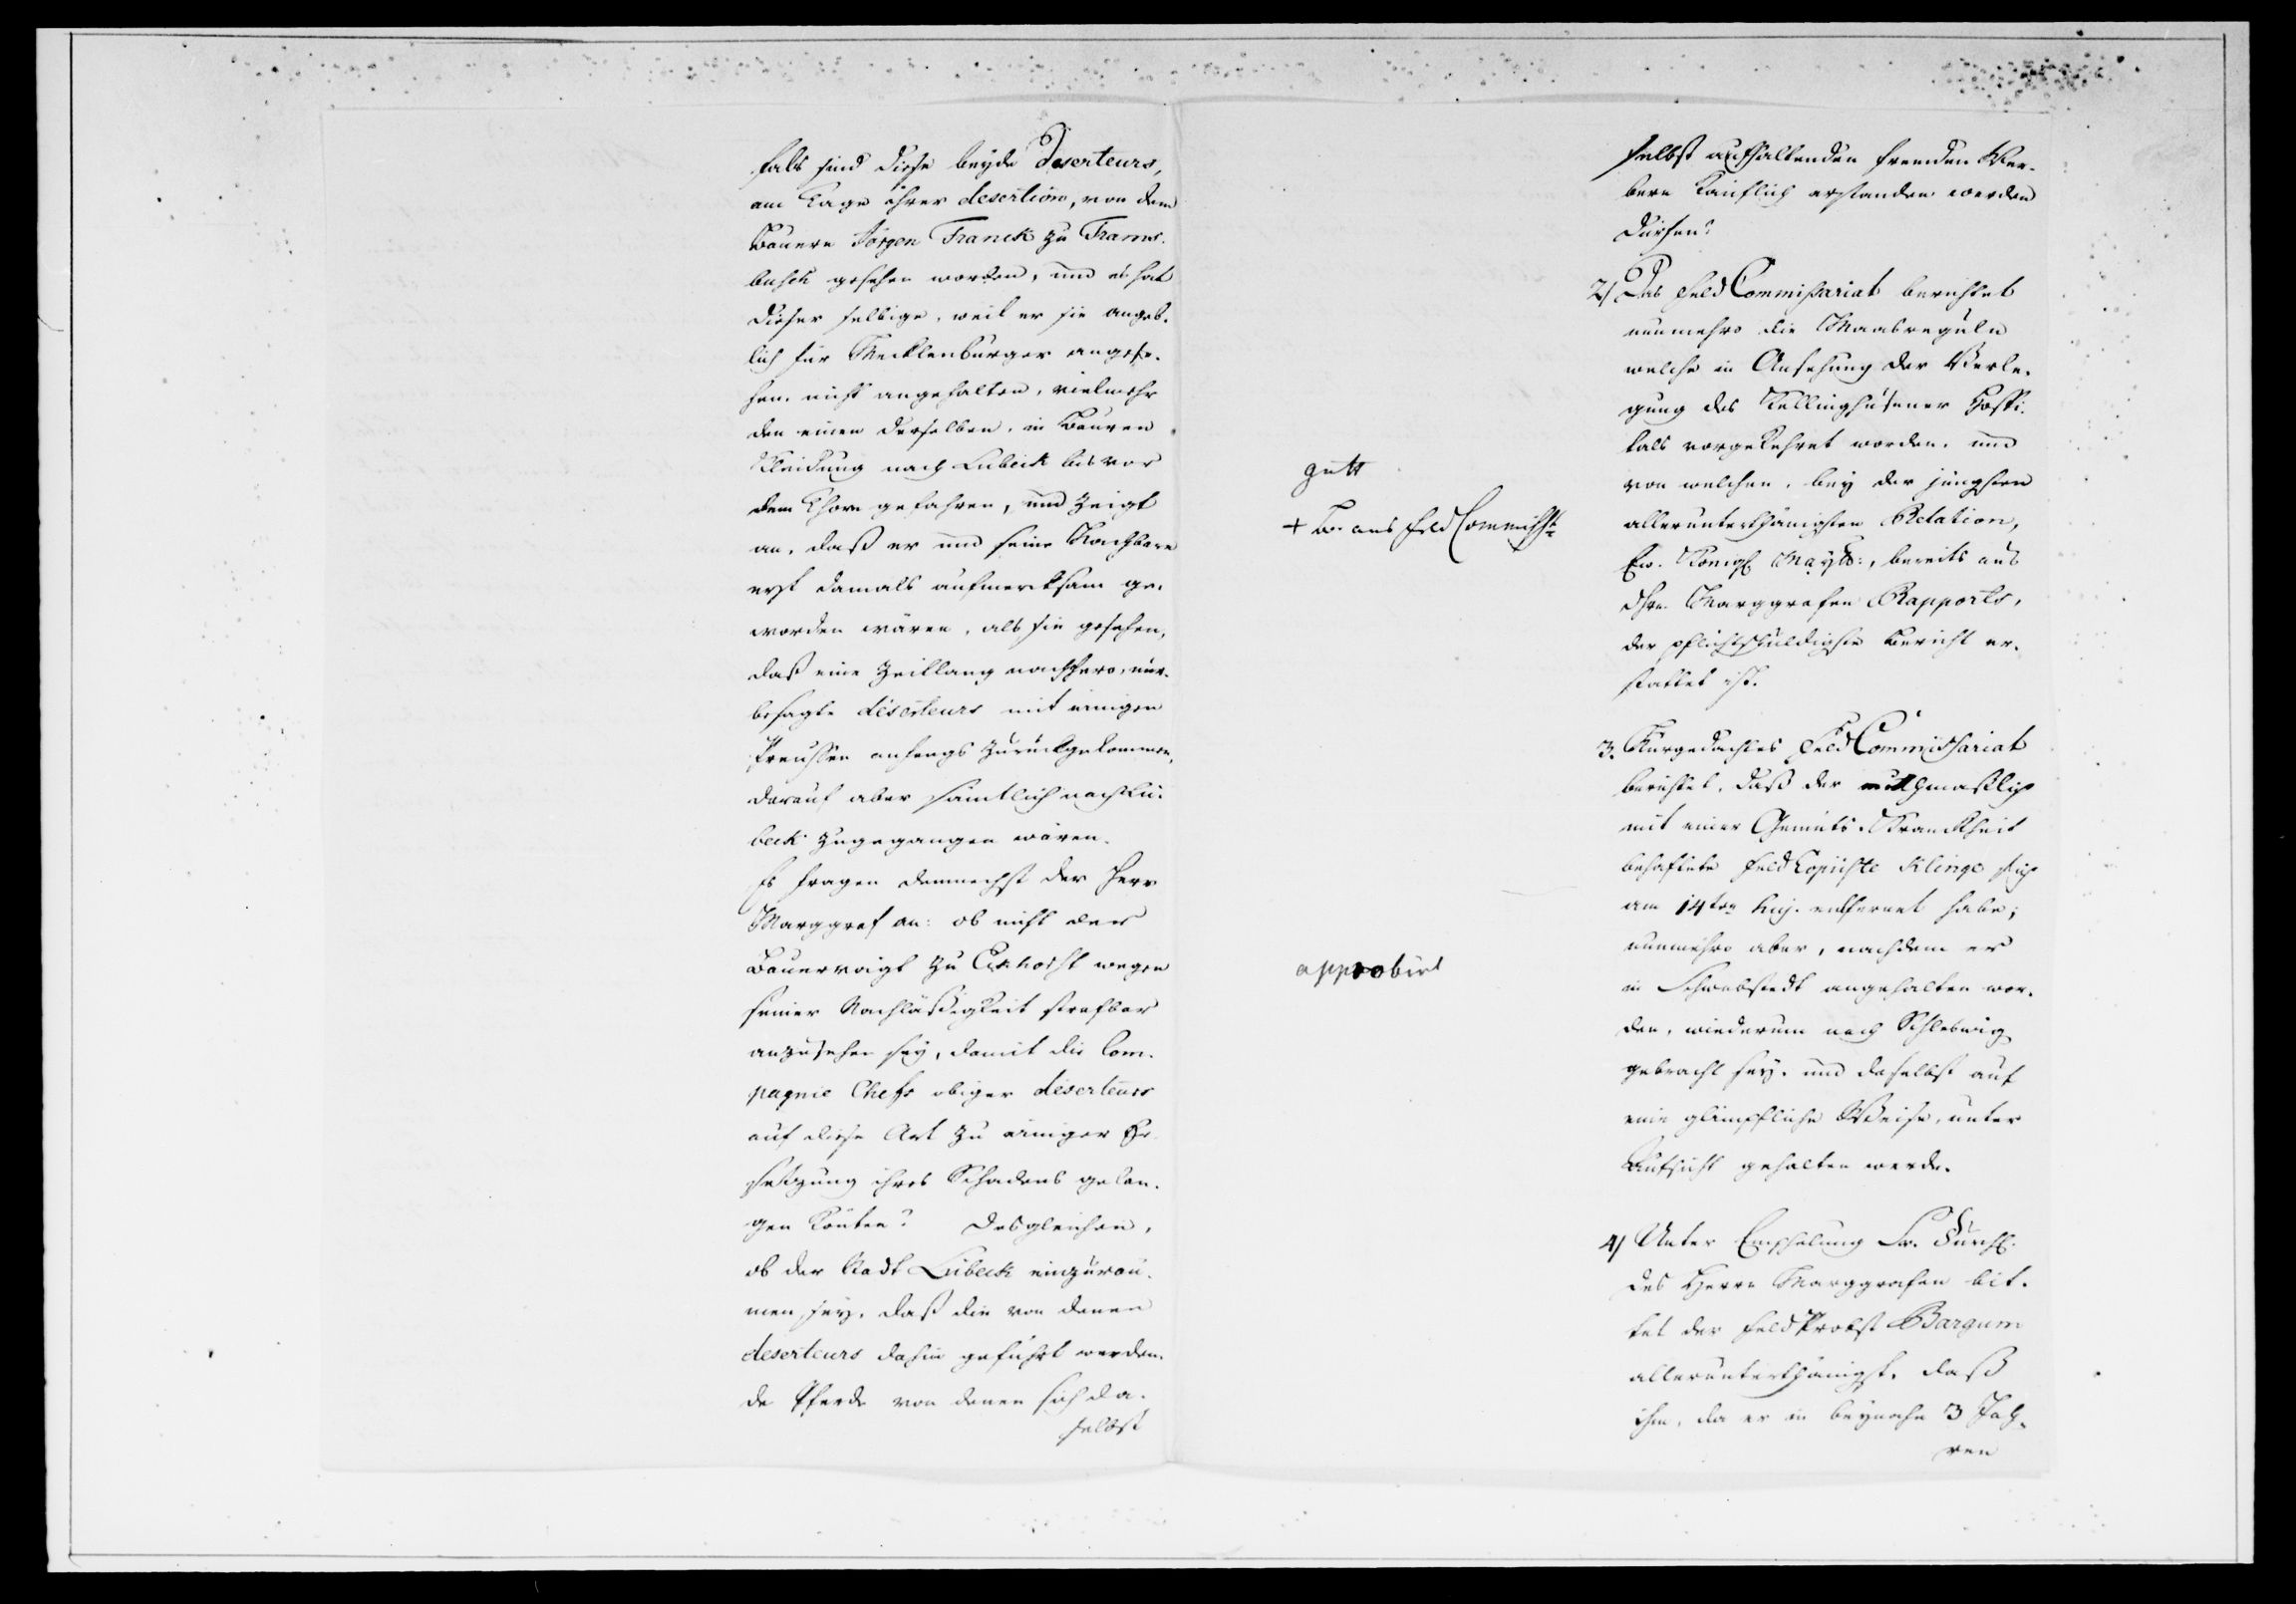 fals sind diese beyde Deserteurs,
am Tage ihrer desertion, von dem
Bauern Jörgen Franck zu Frams-
busch gesehen worden, und es hat
dieser selbige, weil er sie angeb-
lich für Mecklenburger angese-
hen, nicht angehalten, vielmehr
den einen derselben, in Bauren
Kleidung nach Lübeck bis vor
dem Thore gefahren, und zeigt
an, daß er und seine Nachbarn
erst damals aufmerksam ge-
worden wären, als sie gesehen,
daß eine Zeitlang nachhero, mer-
besagte deserteurs mit einigen
Preussen anfangs zurückgekommen,
darauf aber sämtlich nach Lü-
beck zugegangen wären.
Es fragen demnechst der Herr
Marggraf an: ob nicht der
Bauervoigt zu Eckhorst wegen
seiner Nachläßigkeit strafbar
anzusehen sey, damit die Com-
pagnie Chefs obiger deserteurs
auf diese Art zu einiger Er-
setzung ihres Schadens gelan-
gen könten? Desgleichen,
ob der Stadt Lübeck einzuräu-
men sey, daß die von denen
deserteurs dahin geführt werden-
de Pferde von denen sich da-
selbst
selbst aufhaltenden fremden Wer-
bern käuflich erstanden werden
dürfen?
2) Das Feld Commissariat berichtet
nunmehro die Maasreguln
welche in Ansehung der Verle-
gung des Kellinghusener Hospi-
tals vorgekehret worden, und
von welchen, bey der jüngsten
allerunterthänigsten Relation,
Ew. Königl. Mayts:, bereits aus
des Marggrafen Rapports,
der pflichtschuldigste Bericht er-
stattet ist.
gutt
+ B. ans Feld Commiss:
3. Kurgedachtes Feld Commissariat
berichtet, daß der muthmaßlich
mit einer Gemüts-Kranckheit
behaftete Feld Copiiste Klinge sich
am 14ten huj. entfernet habe;
nunmehro aber, nachdem er
in Schwabstedt angehalten wor-
den, wiederum nach Schleswig
gebracht sey, und daselbst auf
eine glimpfliche Weise, unter
Aufsicht gehalten werde.
approbirt
4) Unter Empfelung Sr. Durchl.
des Herrn Marggrafen bit-
tet der Feld Probst Bargum
allerunterthänigst, daß
ihm, da er in beynahe 3 Jah-
ren